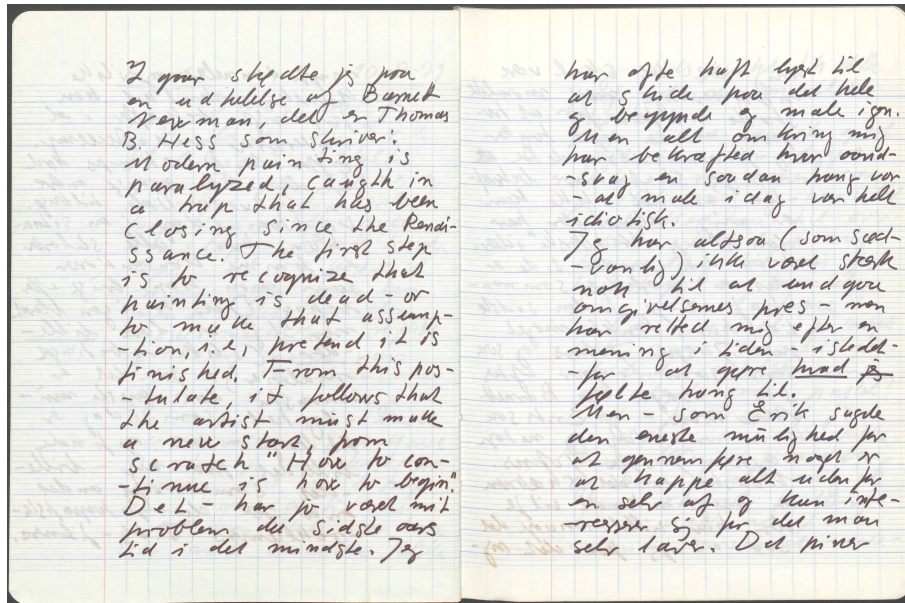 I gaar stødte jeg paa
en udtalelse af Barnett
Newman, det er Thomas
B. Hess som skriver:
Modern painting is
paralyzed, caugth in
a trap that has been
closing since the Renai-
ssance. The first step
is to recognize that
painting is dead – or
to make that assump-
-tion, i.e, pretend it is
finished. From this pos-
-tulate, it follows that
the artist must make
a new start, from
scratch "How to con-
-tinue is how to begin".
Det – har jo været mit
problem det sidste aars
tid i det mindste. Jeg
har ofte haft lyst til
at skide paa det hele
og begynde og male igen.
Men alt omkring mig
har bekræfted hvor aand-
-svag en saadan trang var
– at male idag var helt
idiotisk.
Jeg har altsaa (som sæd-
-vanlig) ikke været stærk
nok til at undgaa
omgivelsernes pres – men
har retted mig efter en
mening i tiden – istedet-
-for at gøre hvad jeg
følte trang til.
Men – som Erik sagde
den eneste mulighed for
at gennemføre noget er
at kappe alt udenfor
en selv af og kun inte-
-ressere sig for det man
selv laver. Det piner